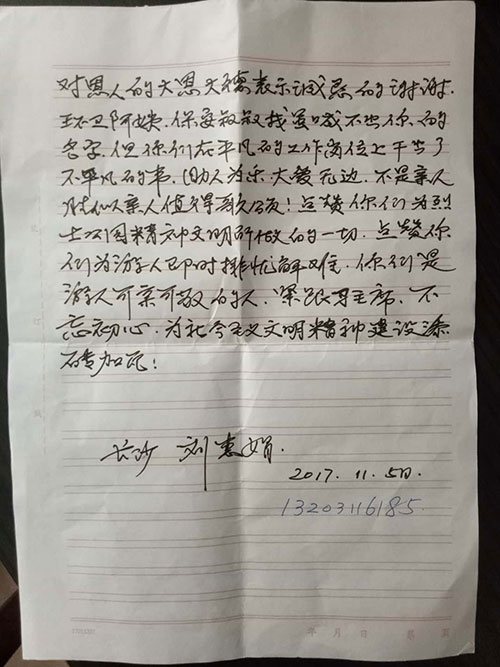 对恩人的大恩大德表示诚恳的谢谢.
环卫阿姨.保安叔叔我虽喊不出你的
名字.但你们在平凡的工作岗位上干出了
不平凡的事.(助人为乐大爱无边.不是亲人
胜似亲人值得歌颂!点赞你们为烈
士公园精神文明所做的一切.点赞你
们为游人即时排忧解难.你们是
游人可亲可敬的人.紧跟习主席.不
忘初心.为社会主义文明精神建设添
砖加瓦!
长沙 刘惠娟.
2017.11.5日.
13203116185.
年 月 日 第 页